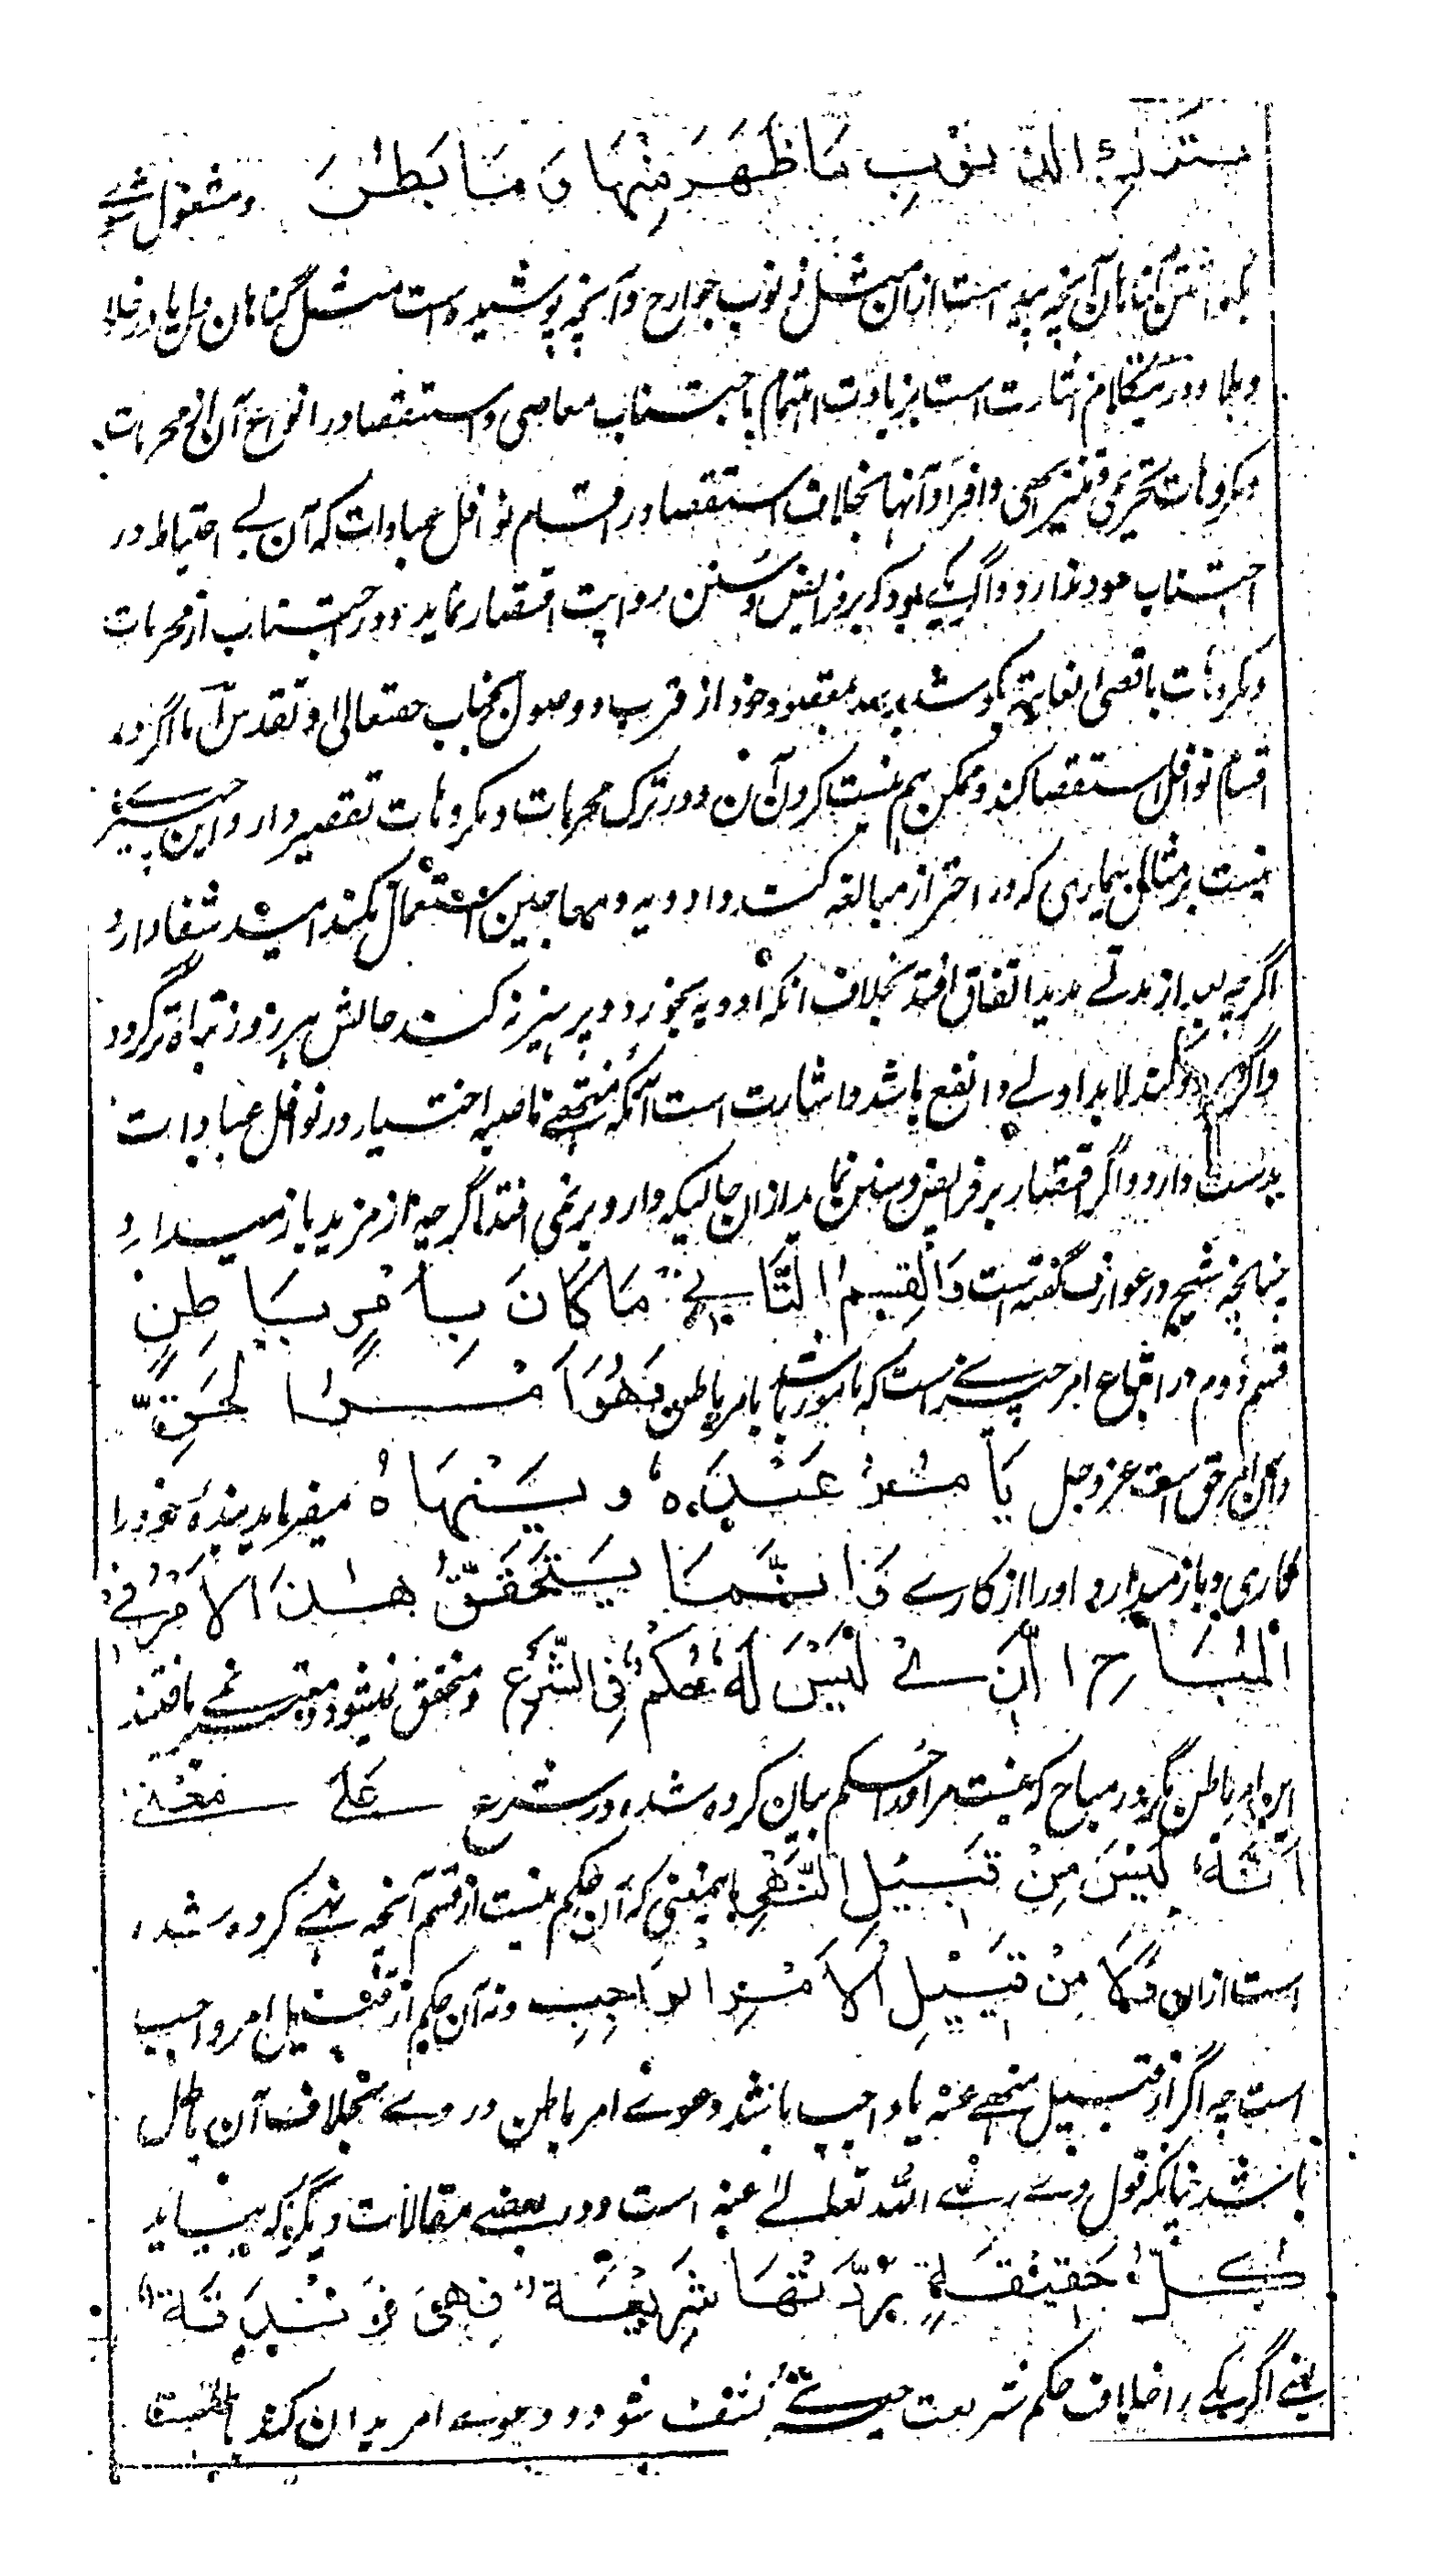 بِتَرْكِ الذُّنُوْبِ مَا ظَهَرَ مِنْهَا وَمَا بَطَنَ ومشغول شوے
بگذاشتن گناهان آنچه پیداست ازان مثل ذنوب جوارح وآنچه پوشیده است مثل گناهان دل یا در خلا
وملا ودرین کلام اشارت است بزیادت اهتمام باجتناب معاصی واستقصا در انواع آن از محرمات
ومکروهات تحریمی وتنزیهی وافراد آنها بخلاف استقصا در اقسام نوافل عبادات که آن بے احتیاط در
اجتناب سود ندارد واگر یکے بود که بر فرایض وسنن رواتب اقتصار نماید ودر اجتناب از محرمات
ومکروهات باقصی الغایة بکوشد برسد بمقصود خود از قرب ووصول بجناب حقتعالی وتقدس اما اگر در
اقسام نوافل استقصا کند وممکن هم نیست کردن آن ودر ترک محرمات ومکروهات تقصیر دارد این چیزے
نیست بر مثال بیماری که در احتراز مبالغه کند وادویه ومعاجین استعمال نکند امید شفا دارد
اگرچه بعد از مدتے مدید اتفاق افتد بخلاف آنکه ادویه بخورد وپرهیز نکند حالش هر روز تباه تر گردد
واگر هر دو کند لابد اولے وانفع باشد واشارت است بآنکه منتهی ناصیه اختیار در نوافل عبادات
بدست دارد واگر اقتصار بر فرایض وسنن نماید ازان جا لیکه دارد بر نمی افتد اگرچه از مزید باز میدارد
چنانچه شیخ در عوارف گفته است وَالْقِسْمُ الثَّانِيْ مَا كَانَ بِاَمْرٍ بَاطِنٍ
قسم دوم در اتباع امر چیزے است که مامور باشد بامر باطن فَهُوَ اَمْرُ الْحَقِّ
واین امر حق است عز وجل يَاْمُرُ عَبْدَهٗ وَيَنْهَاهُ میفرماید بندۀ خود را
بکاری وباز میدارد او را از کارے وَاِنَّمَا يَتَحَقَّقُ هٰذَا الْاَمْرُ فِيْ
الْمُبَاحِ الَّذِيْ لَيْسَ لَهٗ حُكْمٌ فِي الشَّرْعِ ومتحقق نمیشود ومعتبر نمے یافتند
این امر باطن مگر در مباح که نیست مر او را حکم بیان کرده شده در شرع عَلٰى مَعْنٰى
اَنَّهٗ لَيْسَ مِنْ قَبِيْلِ النَّهْيِ باینمعنی که آن حکم نیست از قسم آنچه نهے کرده شده
است ازان وَلَا مِنْ قَبِيْلِ الْاَمْرِ الْوَاجِبِ ونه آن حکم از قبیل امر واجب
است چه اگر از قبیل منهے عنه یا واجب باشد دعوے امر باطن در وے بخلاف آن باطل
باشد چنانکه قول وے رضے الله تعالے عنه است ودر بعضے مقالات دیگر که میفرماید
كُلُّ حَقِيْقَةٍ رَدَّتْهَا شَرِيْعَةٌ فَهِيَ زَنْدَقَةٌ
یعنے اگر یکے را خلاف حکم شریعت چیزے کشف شود ودعوے امر بدان کند